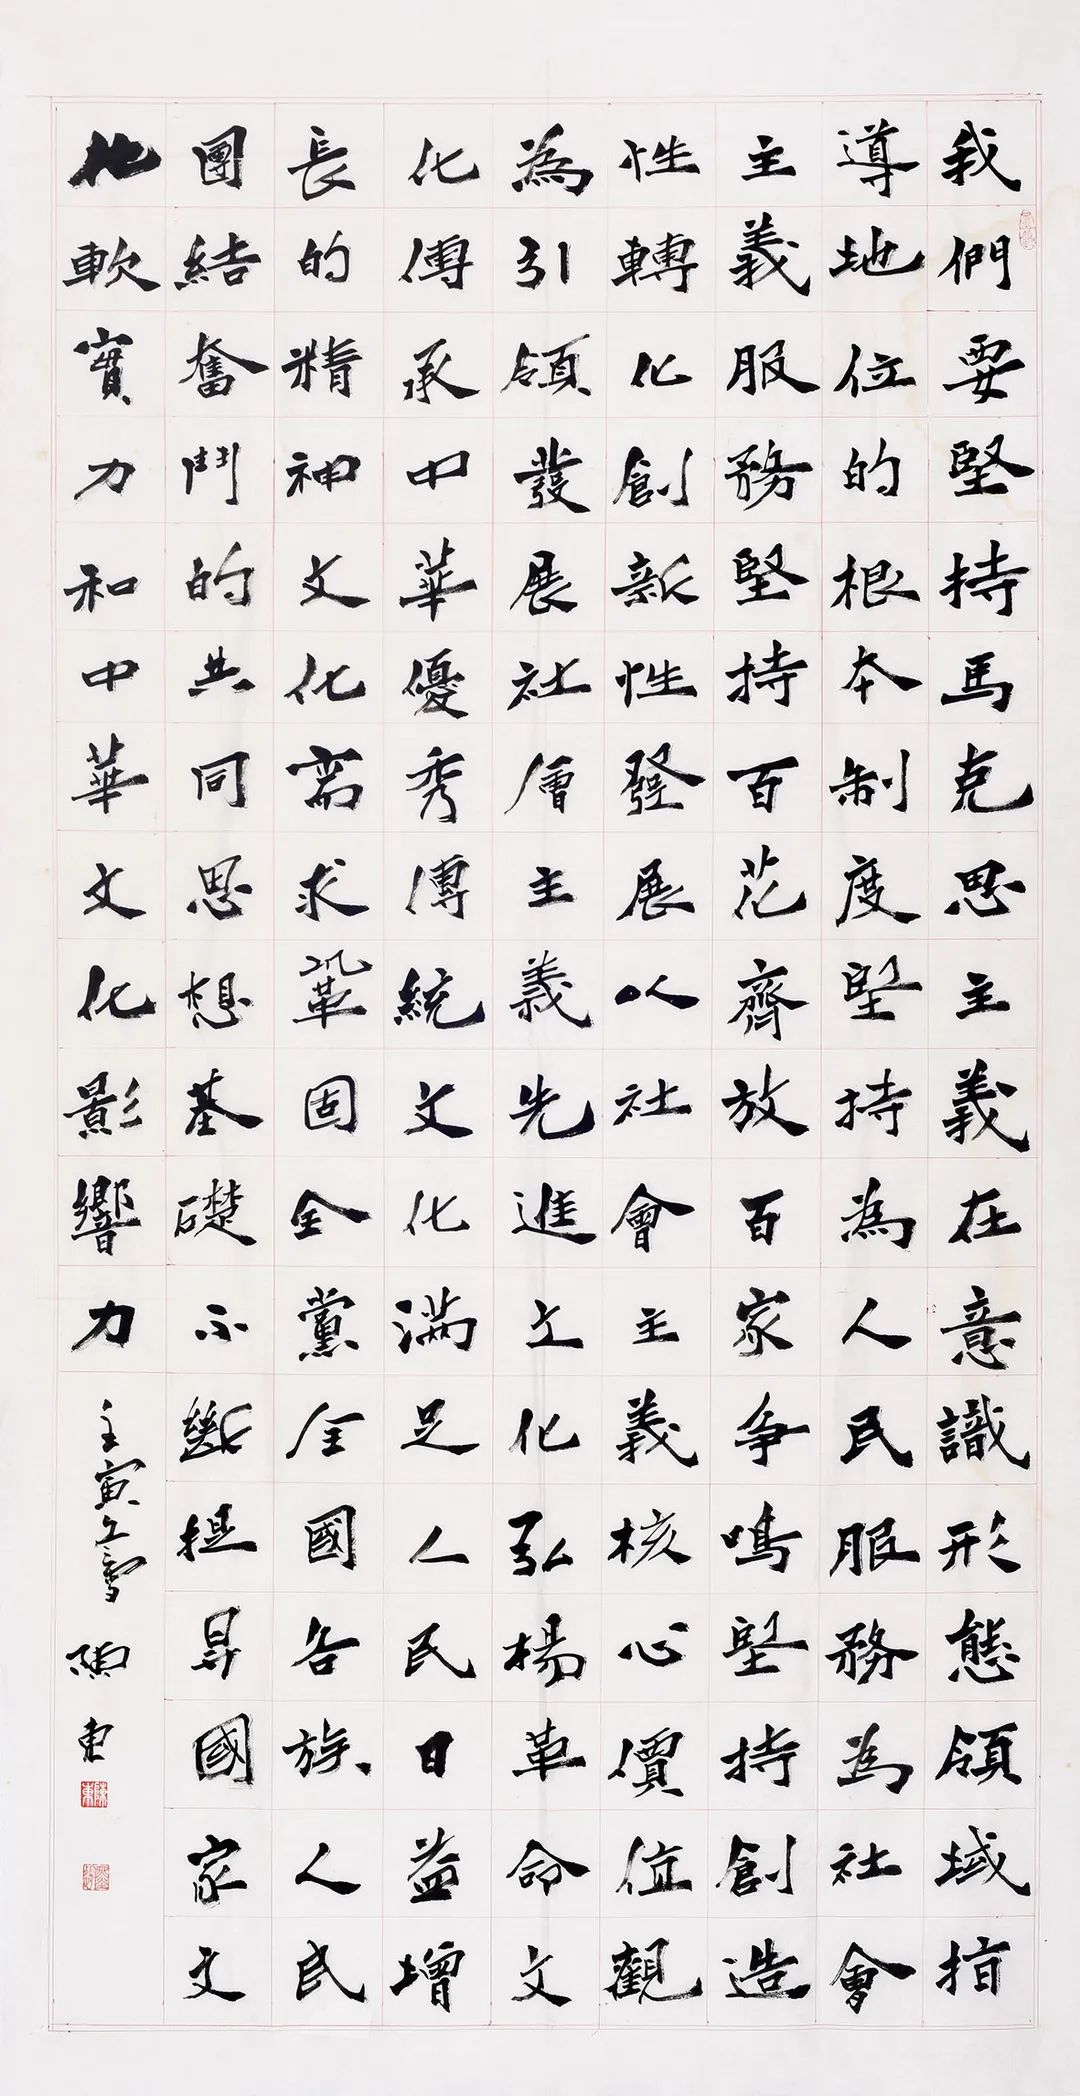 我們要堅持馬克思主義在意識形態領域指
導地位的根本制度堅持為人民服務為社會
主義服務堅持百花齊放百家爭鳴堅持創造
性轉化創新性發展以社會主義核心價值觀
為引領發展社會主義先進文化弘揚革命文
化傳承中華優秀傳統文化滿足人民日益增
長的精神文化需求鞏固全黨全國各族人民
團結奮鬥的共同思想基礎不斷提昇國家文
化軟實力和中華文化影響力
壬寅 陳東